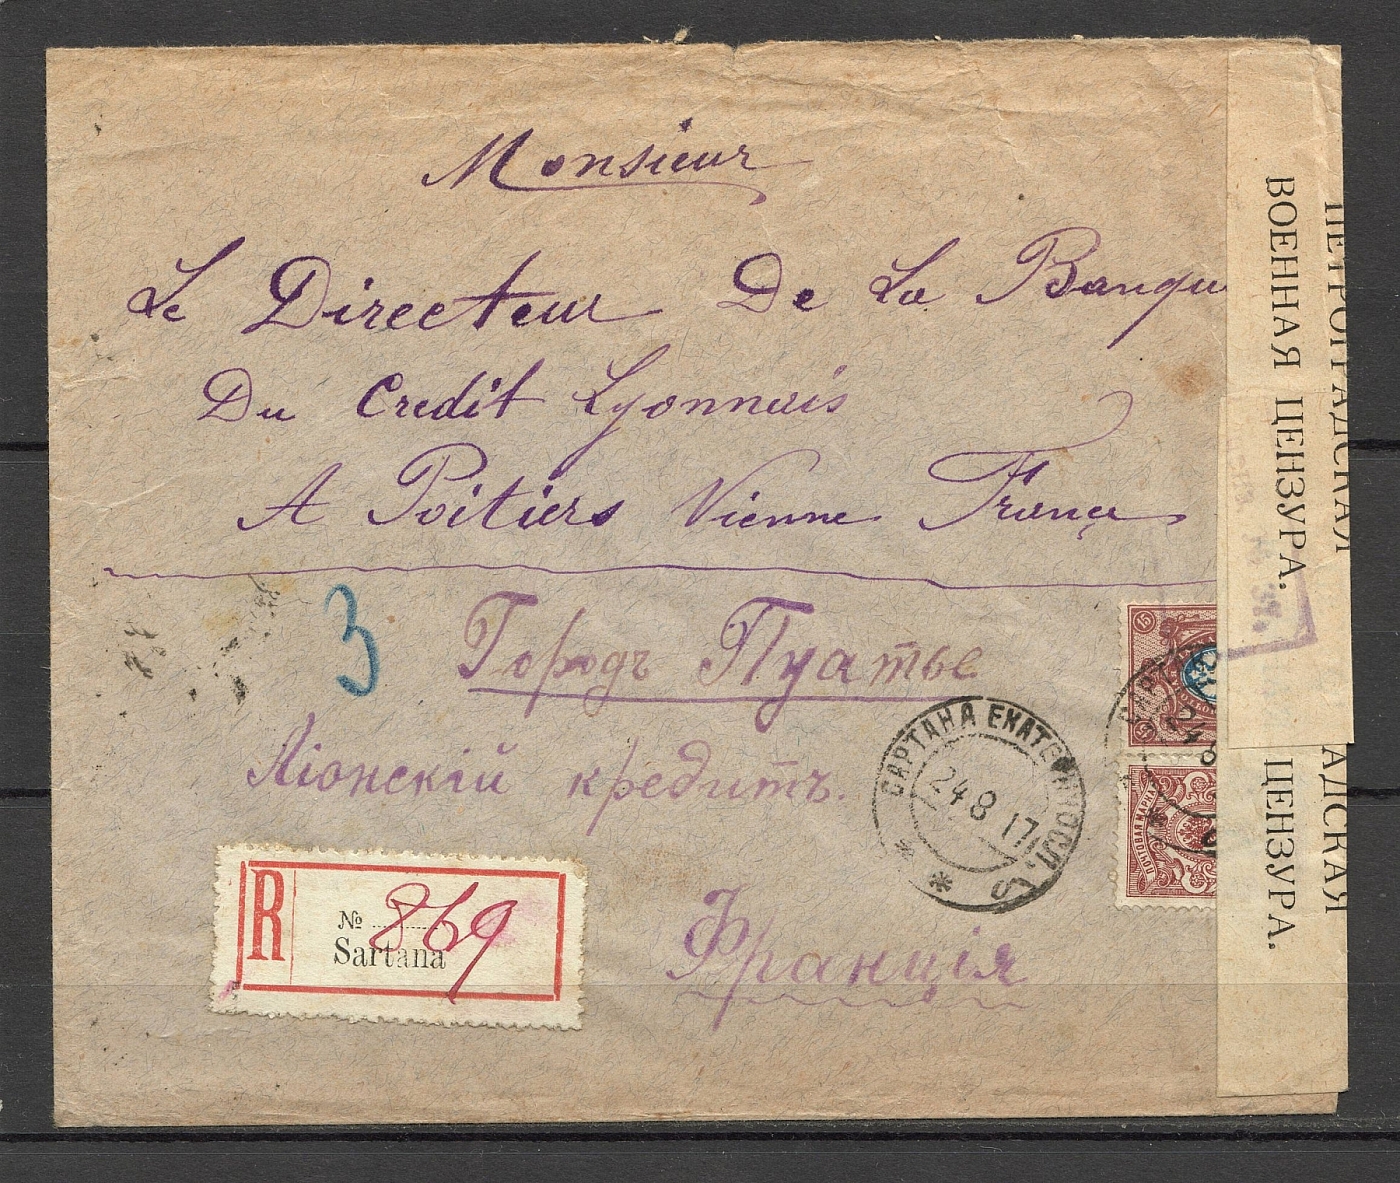 Monsieur
Le Directeur De La Banqu
Du Credit Lyonnais
A Poitiers Vienne France
3
Городъ Пуатье
Ліонскій кредитъ.
Франція
R
№ 869
Sartana
САРТАНА ЕКАТЕРИНОСЛ.
24 8 17
15
15
ПОЧТОВАЯ МАРКА
ПЕТРОГРАДСКАЯ
ВОЕННАЯ ЦЕНЗУРА.
АДСКАЯ
ЦЕНЗУРА.